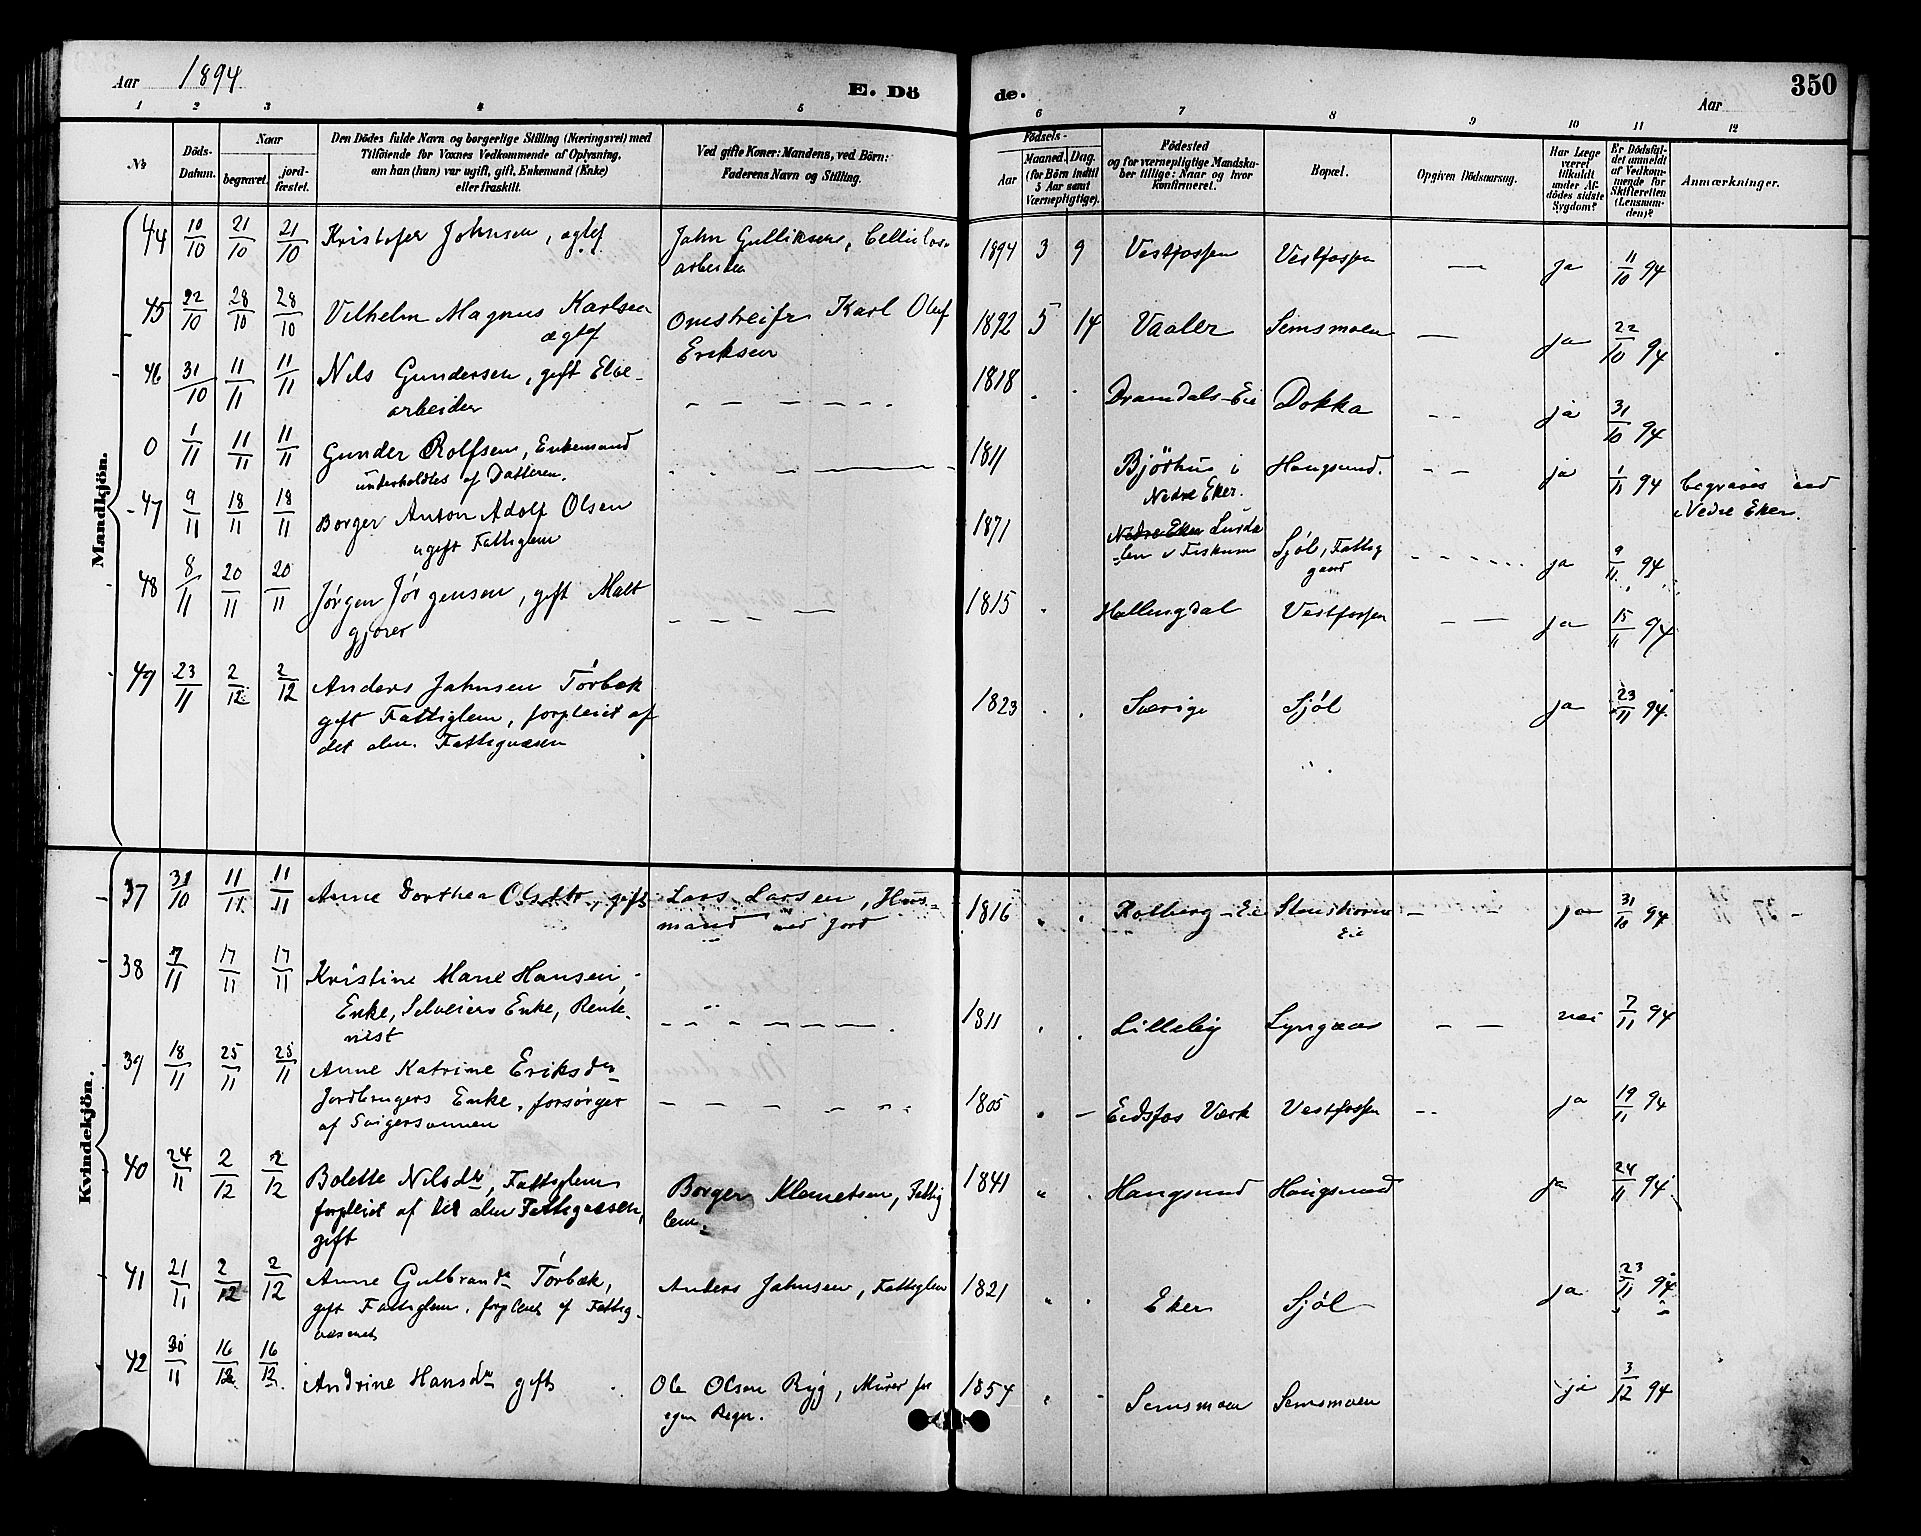 Aar 1894
E. Dö
de.
Aar
350
1 2 3 4 5 6 7 8 9 10 11 12
No
Döds-Datum.
Naar
begravet.
jord-fæstet.
Den Dödes fulde Navn og borgerlige Stilling (Næringsvei) med
Tilföiende for Voxnes Vedkommende af Oplysning,
om han (hun) var ugift, gift, Enkemand (Enke)
eller fraskilt.
Ved gifte Koner: Mandens, ved Börn:
Faderens Navn og Stilling.
Födsels-
Aar
Maaned. Dag.
(for Börn indtil
5 Aar samt
Værnepligtige).
Födested
og for værnepligtige Mandska-
ber tillige: Naar og hvor
konfirmeret.
Bopæl.
Opgiven Dödsaarsag.
Har Læge
været
tilkaldt
under Af-
dödes sidste
Sygdom?
Er Dödsfal-
det anmeldt
af Vedkom-
mende for
Skifteretten
(Lensman-
den)?
Anmærkninger.
Mandkjön.
44 10/10 21/10 21/10 Kristofer Johnsen, ægtef Jahn Gulliksen, Cellulos- 1894 3 9 Vestfossen Vestfossen — ja 11/10 94
arbeider
45 22/10 28/10 28/10 Vilhelm Magnus Karlsen Omstreifer Karl Oluf 1892 5 14 Vaaler Semsmoen — ja 22/10 94
ægtef Eriksen
46 31/10 11/11 11/11 Nils Gundersen, gift Elve- 1818 Dramdals-Eie Dokka — ja 31/10 94
arbeider
0 1/11 11/11 11/11 Gunder Rolfsen, Enkemand 1811 Bjørhus i Hougsund. — ja 1/11 94 begraves ved
underholdtes af Datteren. Nedre Eker. Nedre Eker.
47 9/11 18/11 18/11 Borger Anton Adolf Olsen 1871 Nedre Eker Sjøl, Fattig ja 9/11 94
ugift Fattiglem v Fiskum gaard
48 8/11 20/11 20/11 Jørgen Jørgensen, gift Malt 1815 Hallingdal Vestfossen — ja 15/11 94
gjører
49 23/11 2/12 2/12 Anders Jahnsen Tørbæk 1823 Sverige Sjøl ja 23/11 94
gift Fattiglem, forpleiet af
det alm. Fattigvæsen
Kvindekjön.
37 31/10 11/11 11/11 Anne Dorthea Olsdtr, gift Lars Larsen, Hus- 1816 Rolberg-Eie Stenskorven — ja 31/10 94
mand med Jord Eie
38 7/11 17/11 17/11 Kristine Marie Hansen,
Enke, Selveiers Enke, Rente- 1811 Lilleby Lyngaas — nei 7/11 94
nist
39 18/11 25/11 25/11 Anne Katrine Eriksdtr 1805 Eidsfos Værk Vestfossen ja 19/11 94
Jordbrugers Enke, forsørget
af Svigersønnen
40 24/11 2/12 2/12 Bolette Nilsdtr, Fattiglem Borger Klemetsen, Fattig 1841 Hougsund Hougsund ja 24/11 94
forpleiet af det alm Fattigvæsen, lem.
gift
41 21/11 2/12 2/12 Anne Gulbrandsdtr Tørbæk, Anders Jahnsen, Fattiglem 1821 Eker Sjøl ja 23/11 94
gift Fattiglem, forpleiet af Fattig-
væsenet
42 30/11 16/12 16/12 Andrine Hansdtr gift Ole Olsen Ryg, Murer for 1854 Semsmoen Semsmoen ja 3/12 94
egen Regn.